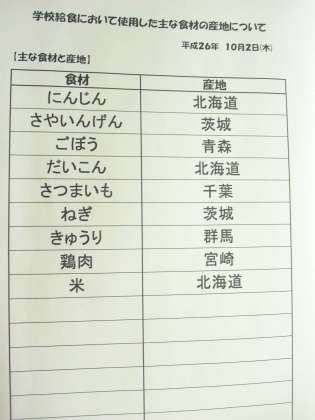 学校給食において使用した主な食材の産地について
平成26年 10月2日(木)
【主な食材と産地】
食材 産地
にんじん 北海道
さやいんげん 茨城
ごぼう 青森
だいこん 北海道
さつまいも 千葉
ねぎ 茨城
きゅうり 群馬
鶏肉 宮崎
米 北海道